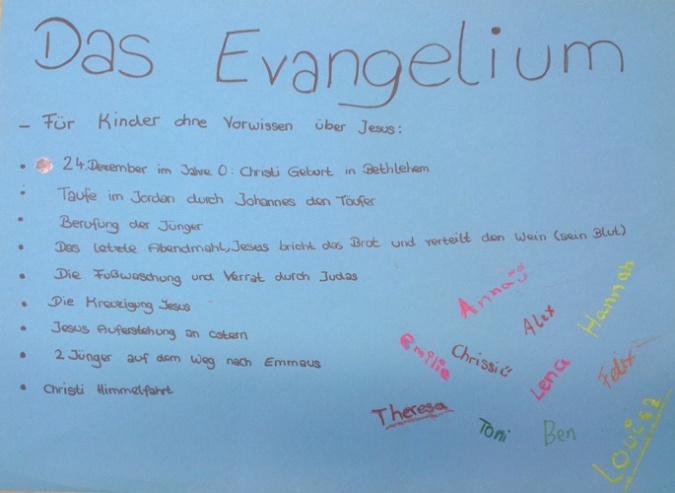 Das Evangelium
- Für Kinder ohne Vorwissen über Jesus:
• 24.Dezember im Jahre 0: Christi Geburt in Bethlehem
• Taufe im Jordan durch Johannes den Täufer
• Berufung der Jünger
• Das letzte Abendmahl, Jesus bricht das Brot und verteilt den Wein (sein Blut)
• Die Fußwaschung und Verrat durch Judas
• Die Kreuzigung Jesus
• Jesus Auferstehung an Ostern
• 2 Jünger auf dem Weg nach Emmaus
• Christi Himmelfahrt
Anna
Hannah
Alex
Emilia
Chrissi
Lena
Felix
Theresa
Toni
Ben
Louisa